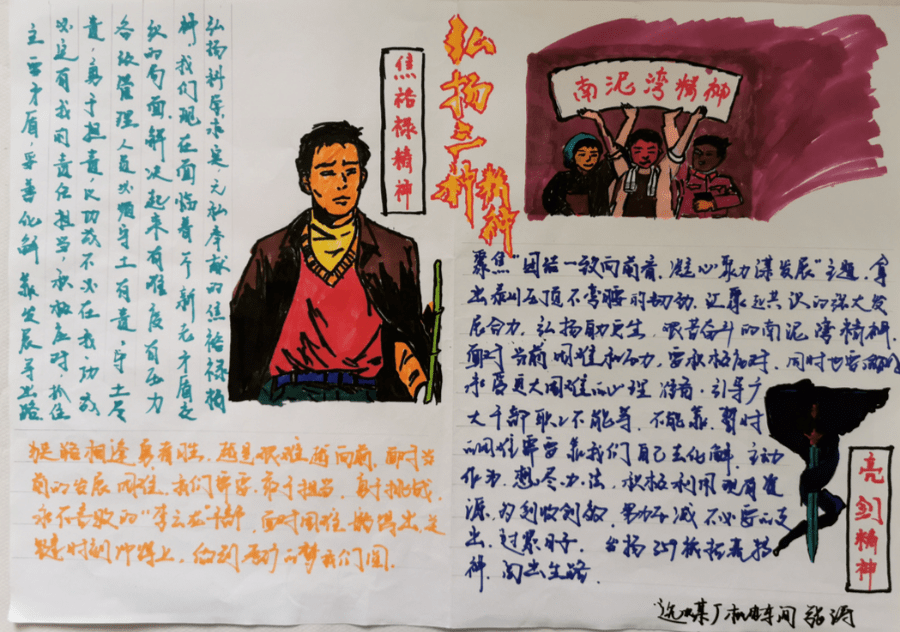 弘扬三种精神
焦裕禄精神
弘扬科学求实、无私奉献的焦裕禄精
神。我们现在面临着
的局面解决起来有难度有压力
各级管理人员必须守土有责、守土尽
责，勇于担责，以功成不必在我，功成
必定有我的责任担当，积极应对抓住
主要矛盾，妥善化解，靠发展寻出路
南泥湾精神
聚焦"团结一致向前看，凝心聚力谋发展"主题，拿
出泰山压顶不弯腰的，汇聚起共识的强大发
展合力，弘扬自力更生、艰苦奋斗的南泥湾精神，
面对当前困难和压力，要积极应对，同时也要
更大困难心理准备，引导广
大干部职工不能等、不能靠，暂时
的困难需要靠我们自己去化解，主动
作为，想尽办法，积极利用现有资
源，减不必要的支
出，过紧日子，
神，闯出生路。
亮剑精神
狭路相逢勇者胜，越是艰难越向前，面对当
前的发展困难，我们需要勇于担当、勇于挑战、
永不言败的"李云龙"干部，面对困难能
键时刻冲得上，
选煤厂机电车间